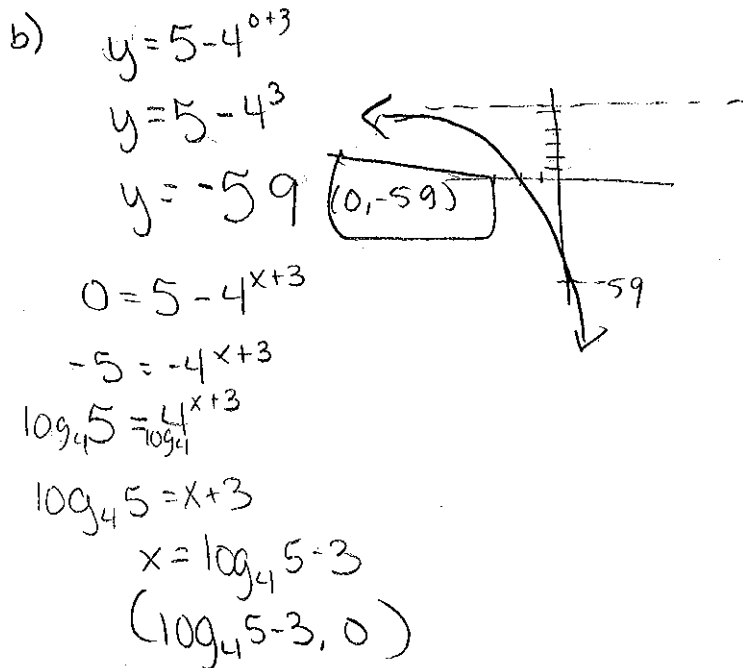 b) y = 5 - 4^{0+3}
y = 5 - 4^3
y = -59 (0, -59)
-59
0 = 5 - 4^{x+3}
-5 = -4^{x+3}
log_4 5 = log_4 4^{x+3}
log_4 5 = x+3
x = log_4 5 - 3
(log_4 5 - 3, 0)